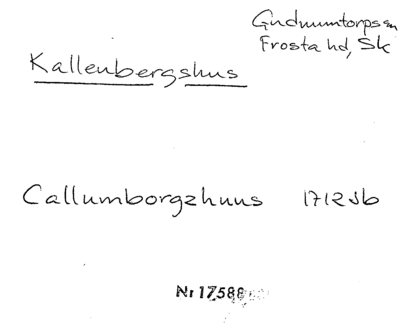 Gudmuntorps sn
Frosta hd, Sk
Kallenbergshus
Callumborgzhuus 1712 Jb
Nr 17588